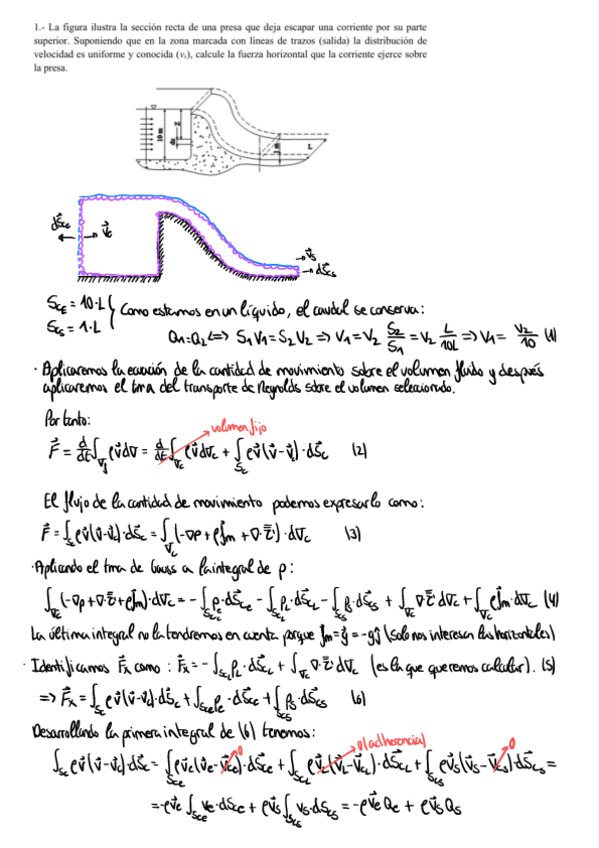 1.- La figura ilustra la sección recta de una presa que deja escapar una corriente por su parte
superior. Suponiendo que en la zona marcada con líneas de trazos (salida) la distribución de
velocidad es uniforme y conocida (vₛ), calcule la fuerza horizontal que la corriente ejerce sobre
la presa.
10 m
Z
dz
1 m
L
dS⃗ce
v⃗e
v⃗s
dS⃗cs
S_CE = 10·L
S_CS = 1·L
Como estamos en un líquido, el caudal se conserva:
Q₁=Q₂ ⟺ S₁V₁ = S₂V₂ ⟹ V₁ = V₂ S₂/S₁ = V₂ L/10L ⟹ V₁ = V₂/10 (1)
· Aplicaremos la ecuación de la cantidad de movimiento sobre el volumen fluido y después
aplicaremos el tma del transporte de Reynolds sobre el volumen seleccionado.
Por tanto:
volumen fijo
F⃗ = d/dt ∫_Vf ρv⃗dV = d/dt ∫_Vc ρv⃗dVc + ∫_Sc ρv⃗(v⃗-v⃗c)·dS⃗c (2)
El flujo de la cantidad de movimiento podemos expresarlo como:
F⃗ = ∫_Sc ρv⃗(v⃗-v⃗c)·dS⃗c = ∫_Vc (-∇p + ρf⃗m + ∇·τ̿')·dVc (3)
· Aplicando el tma de Gauss a la integral de p:
∫_Vc (-∇p+∇·τ̿'+ρf⃗m)·dVc = -∫_Sce p·dS⃗ce - ∫_ScL pL·dS⃗cL - ∫_Scs ps·dS⃗cs + ∫_Vc ∇·τ̿' dVc + ∫_Vc ρf⃗m·dVc (4)
La última integral no la tendremos en cuenta porque f⃗m = g⃗ = -gj⃗ (solo nos interesan las horizontales)
· Identificamos F⃗x como: F⃗x = -∫_ScL pL·dS⃗cL + ∫_Vc ∇·τ̿' dVc (es la que queremos calcular). (5)
⟹ F⃗x = ∫_Sc ρv⃗(v⃗-v⃗c)·dS⃗c + ∫_Sce pe·dS⃗ce + ∫_Scs ps·dS⃗cs (6)
Desarrollando la primera integral de (6) tenemos:
0 0 (adherencia) 0
∫_Sc ρv⃗(v⃗-v⃗c)·dS⃗c = ∫_Sce ρv⃗e(v⃗e-v⃗ce)·dS⃗ce + ∫_ScL ρv⃗L(v⃗L-v⃗cL)·dS⃗cL + ∫_Scs ρv⃗s(v⃗s-v⃗cs)·dS⃗cs =
= -ρv⃗e ∫_Sce ve·dS⃗ce + ρv⃗s ∫_Scs vs·dS⃗cs = -ρv⃗e Qe + ρv⃗s Qs